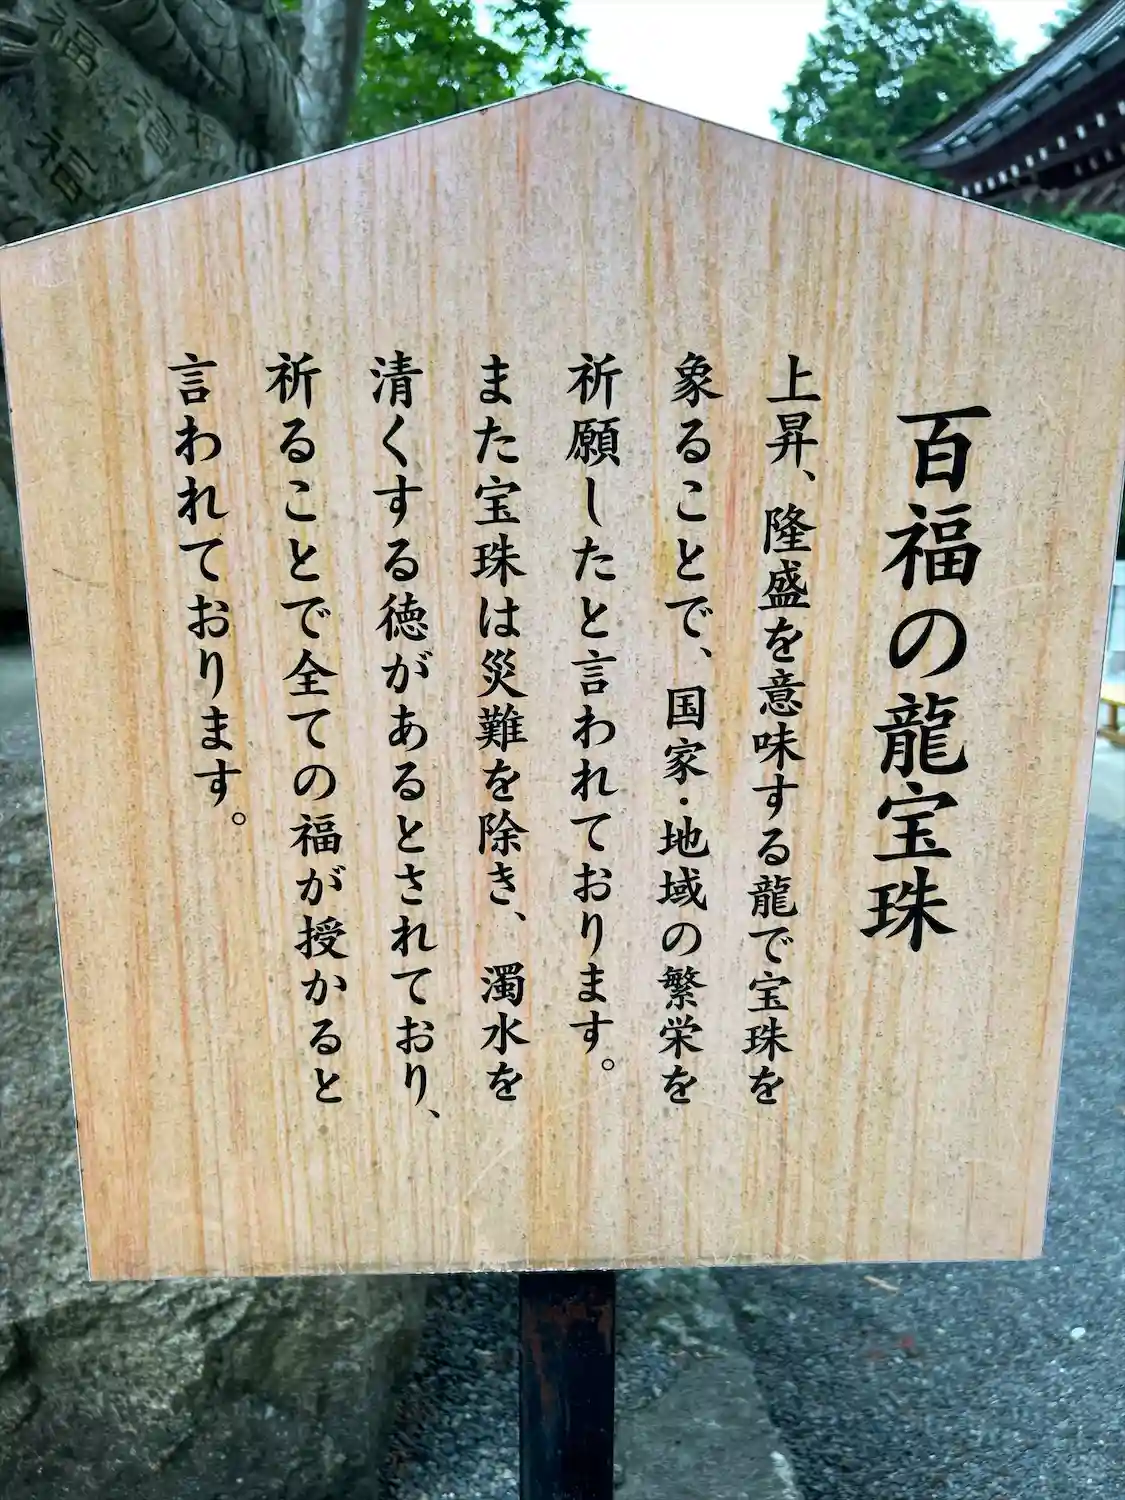 百福の龍宝珠
上昇、隆盛を意味する龍で宝珠を
象ることで、国家・地域の繁栄を
祈願したと言われております。
また宝珠は災難を除き、濁水を
清くする徳があるとされており、
祈ることで全ての福が授かると
言われております。
福
福